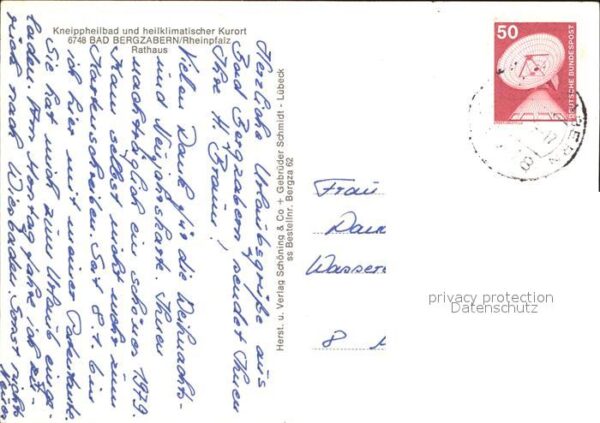 Kneippheilbad und heilklimatischer Kurort
6748 BAD BERGZABERN/Rheinpfalz
Rathaus
Herzliche Urlaubsgrüße aus
Bad Bergzabern sendet Ihnen
Ihre H. Braun!
Vielen Dank für die Weihnachts-
und Neujahrskarte. Ihnen
nachträglich ein schönes 1979.
Kam selbst nicht mehr zum
Kartenschreiben. Seit 8.1. bin
ich hier mit meiner Patentante.
Sie hat mich zum Urlaub einge-
laden. Am Montag fahre ich zu-
rück nach Wiesbaden. Sonst nichts
Neues.
Herst. u. Verlag Schöning & Co + Gebrüder Schmidt - Lübeck
ss Bestellnr. Bergza 62
50
DEUTSCHE BUNDESPOST
Frau
Wasser
8
privacy protection
Datenschutz